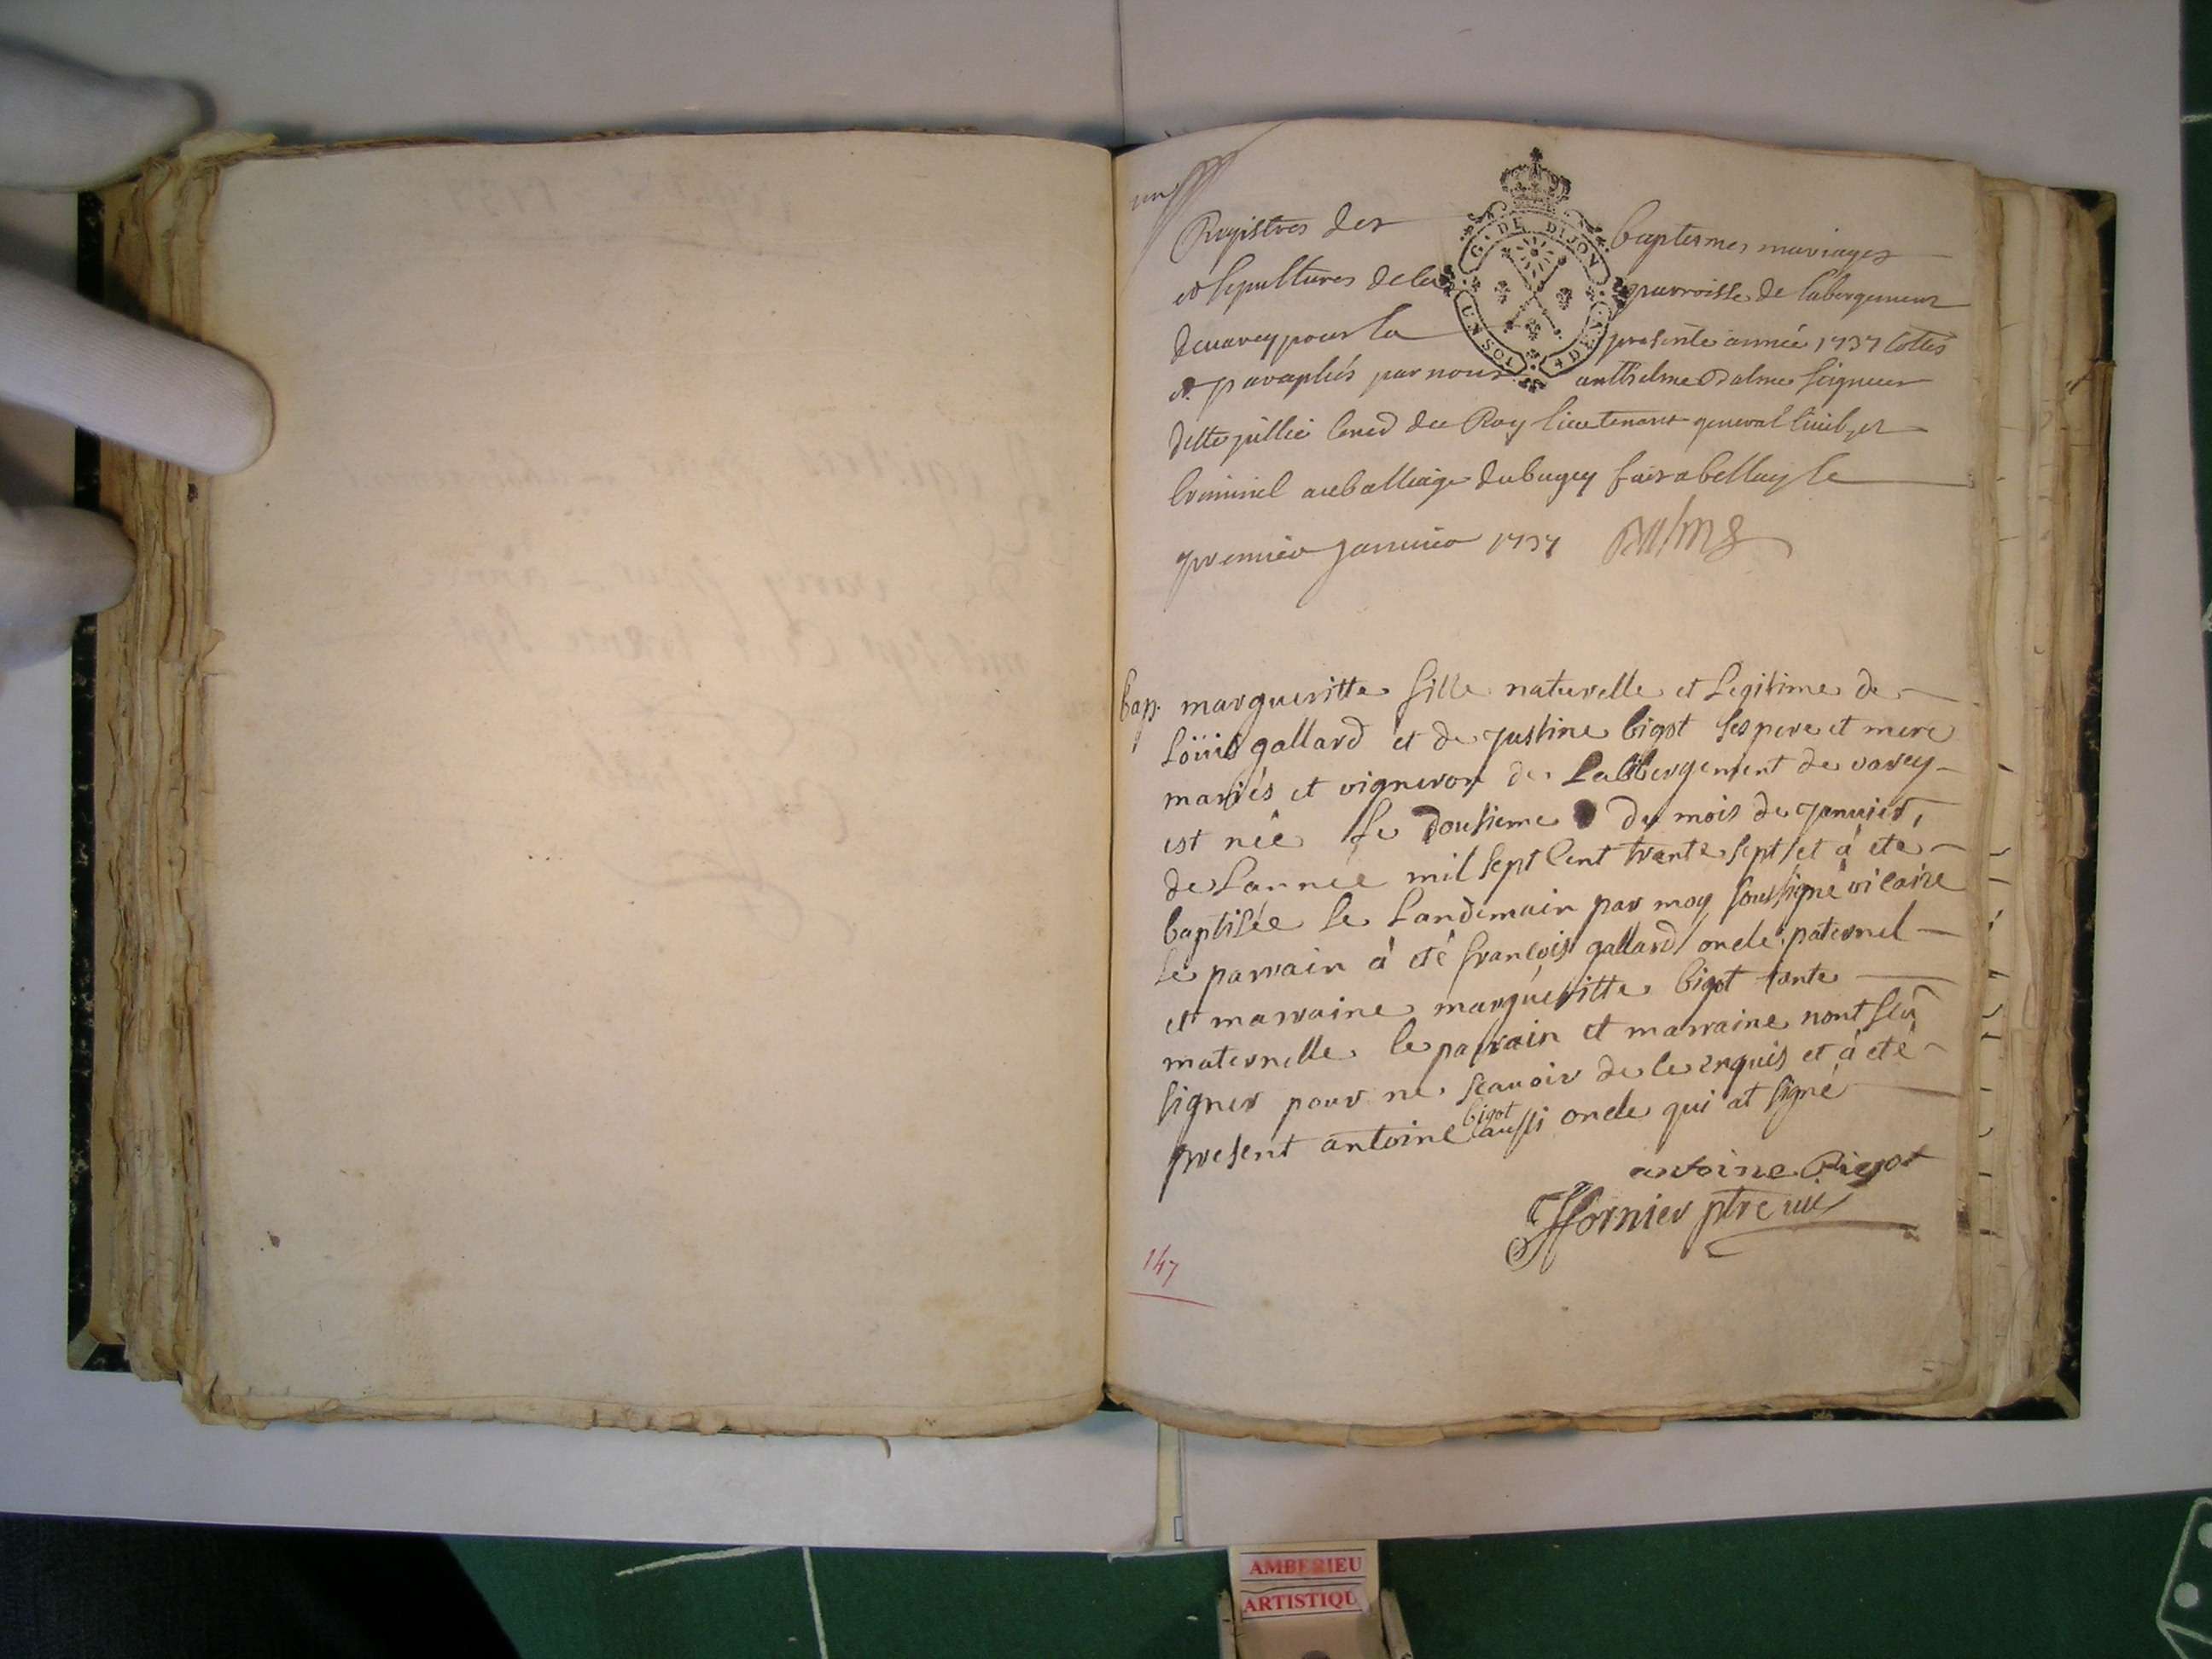 un
Registres des baptesmes mariages
et sepultures de la parroisse de labergement
de varey pour la presente année 1737 cottés
et paraphés par nous anthelme Dalme seigneur
de Roy lieutenant general civil et
criminel au balliage du bugey fait a belley le
premier janvier 1737 Dalme
G. DE DIJON
UN SOL
bap. margueritte fille naturelle et Legitime de
Loüis gallard et de justine bigot ses pere et mere
mariés et vigneron de Labbergement de varey
est née le dousieme du mois de janvier,
de Lannee mil sept cent trante sept et à ete
baptisée le Landemain par moy soussigné vicaire
le parrain à eté françois gallard oncle paternel
et marraine margueritte bigot tante
maternelle le parrain et marraine nont sçu
signer pour ne sçauoir de ce enquis et à eté
present antoine bigot aussi oncle qui at signé
antoine Bigot
ptre vic
147
AMBERIEU
ARTISTIQU